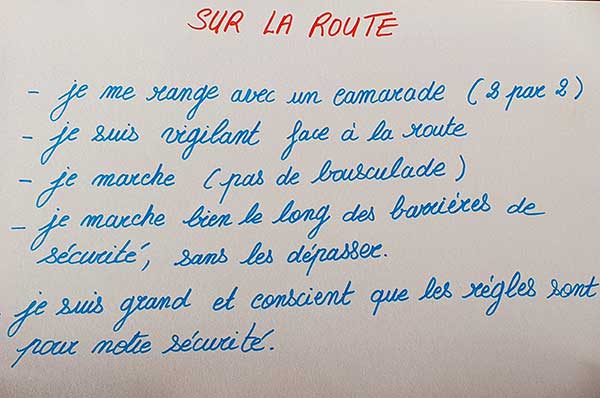 SUR LA ROUTE
- je me range avec un camarade (2 par 2)
- je suis vigilant face à la route
- je marche (pas de bousculade)
- je marche bien le long des barrières de
sécurité, sans les dépasser.
- je suis grand et conscient que les règles sont
pour notre sécurité.